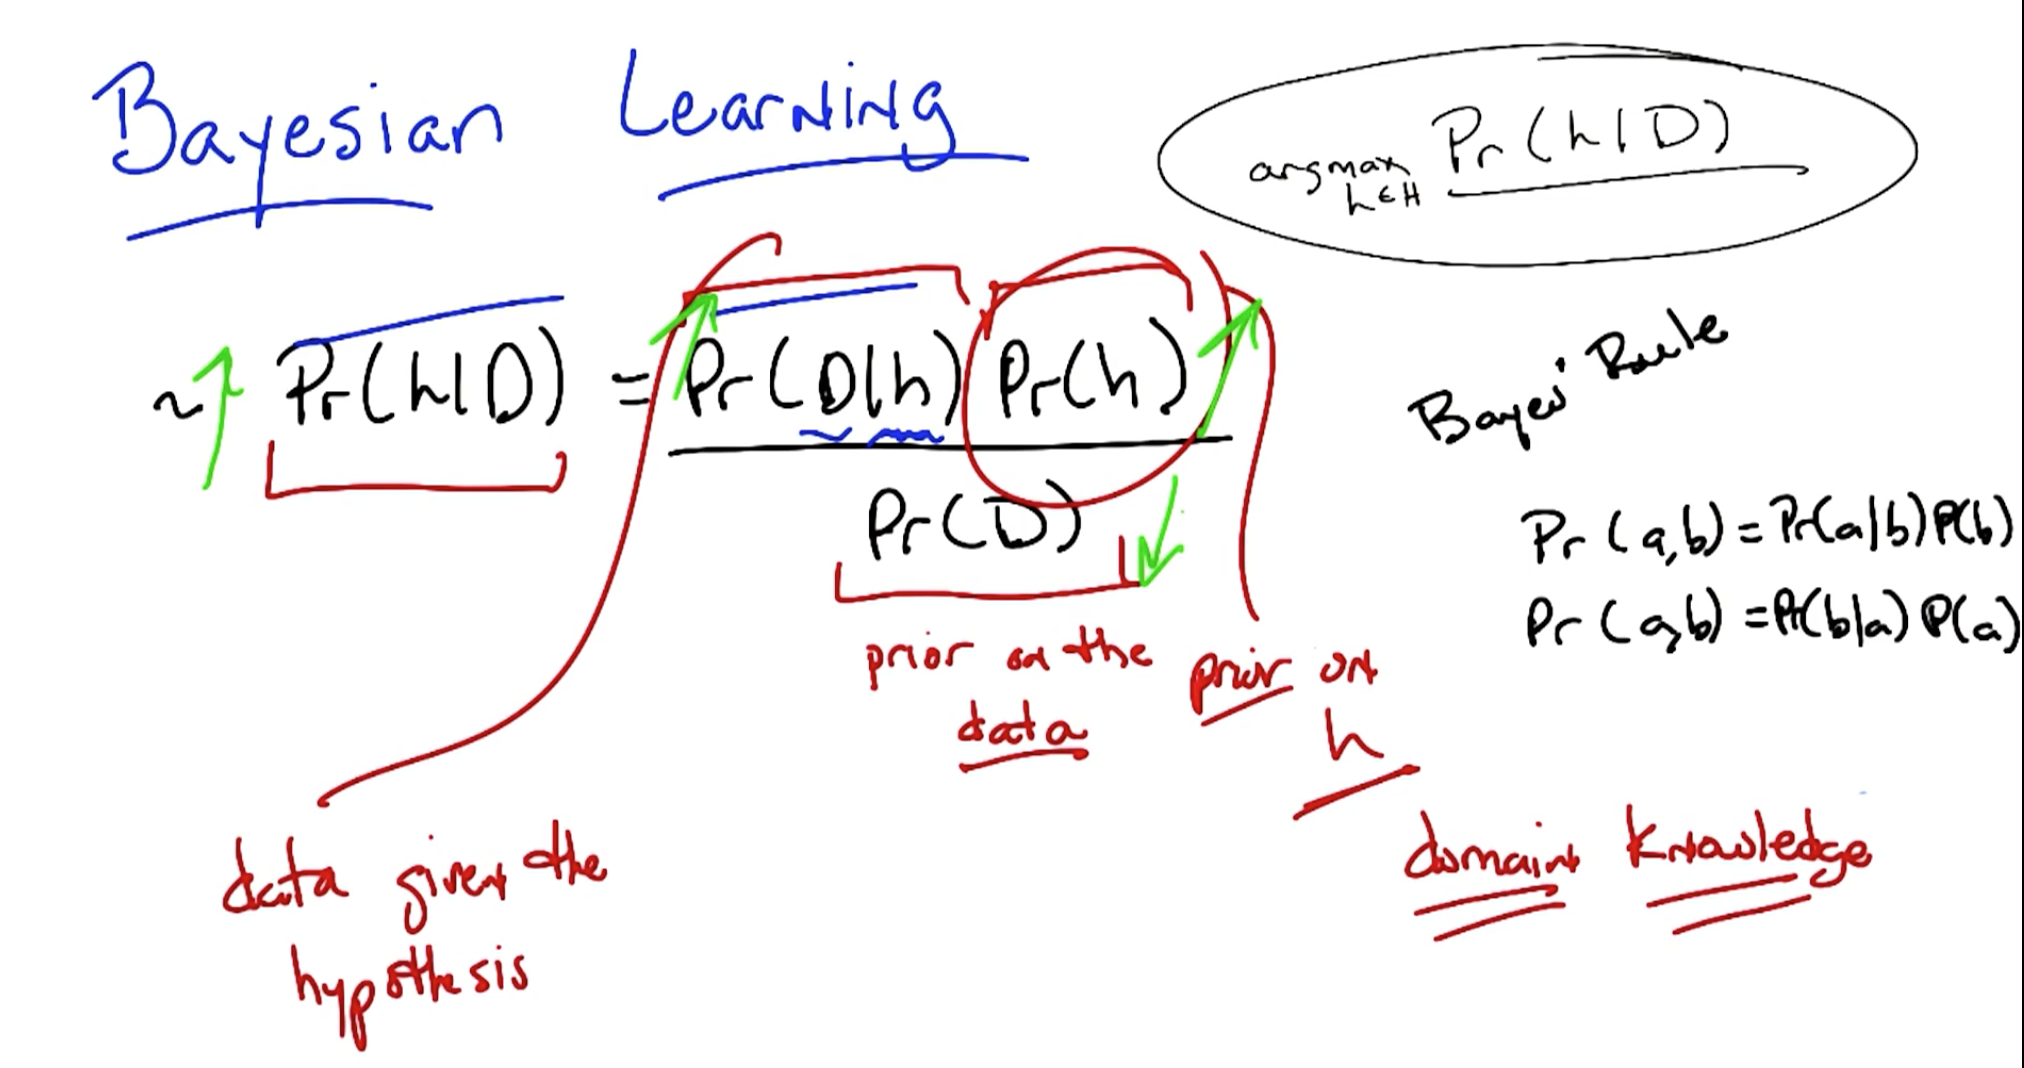 Bayesian Learning
argmax Pr(h|D)
h∈H
~ Pr(h|D) = Pr(D|h) Pr(h)
Pr(D)
Bayes' Rule
Pr(a,b) = Pr(a|b) P(b)
Pr(a,b) = Pr(b|a) P(a)
prior on the
data
prior on
h
domain knowledge
data given the
hypothesis